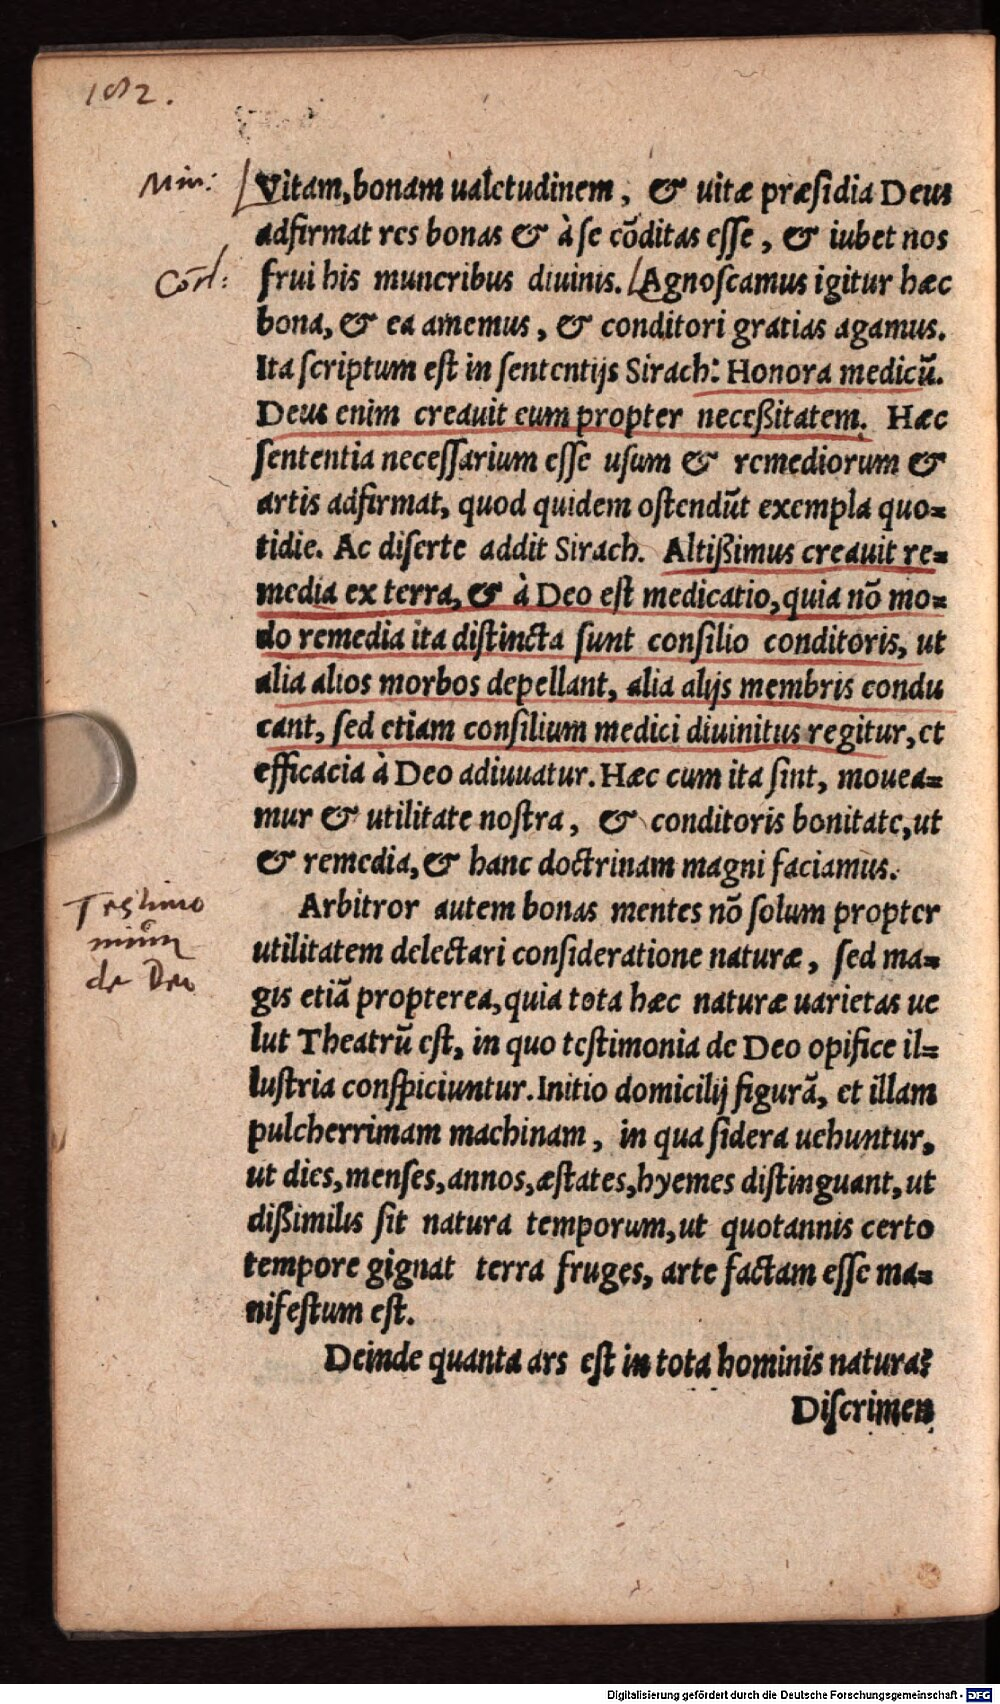 182.
Min:
Vitam, bonam ualetudinem, & uitæ præſidia Deus
adfirmat res bonas & à ſe cõditas eſſe, & iubet nos
frui his muneribus diuinis. Agnoſcamus igitur hæc
bona, & ea amemus, & conditori gratias agamus.
Ita ſcriptum eſt in ſententijs Sirach: Honora medicũ.
Deus enim creauit eum propter neceßitatem. Hæc
ſententia neceſſarium eſſe uſum & remediorum &
artis adfirmat, quod quidem oſtendũt exempla quo=
tidie. Ac diſerte addit Sirach. Altißimus creauit re=
media ex terra, & à Deo eſt medicatio, quia nõ mo=
do remedia ita diſtincta ſunt conſilio conditoris, ut
alia alios morbos depellant, alia alijs membris condu
cant, ſed etiam conſilium medici diuinitus regitur, et
efficacia à Deo adiuuatur. Hæc cum ita ſint, mouea=
mur & utilitate noſtra, & conditoris bonitate, ut
& remedia, & hanc doctrinam magni faciamus.
Teſtimo
niũm
de Deo
Arbitror autem bonas mentes nõ ſolum propter
utilitatem delectari conſideratione naturæ, ſed ma=
gis etiã propterea, quia tota hæc naturæ uarietas ue
lut Theatrũ eſt, in quo teſtimonia de Deo opifice il=
luſtria conſpiciuntur. Initio domicilij figurã, et illam
pulcherrimam machinam, in qua ſidera uehuntur,
ut dies, menſes, annos, æſtates, hyemes diſtinguant, ut
dißimilis ſit natura temporum, ut quotannis certo
tempore gignat terra fruges, arte factam eſſe ma=
nifeſtum eſt.
Deinde quanta ars eſt in tota hominis natura?
Diſcrimen
Digitalisierung gefördert durch die Deutsche Forschungsgemeinschaft - DFG